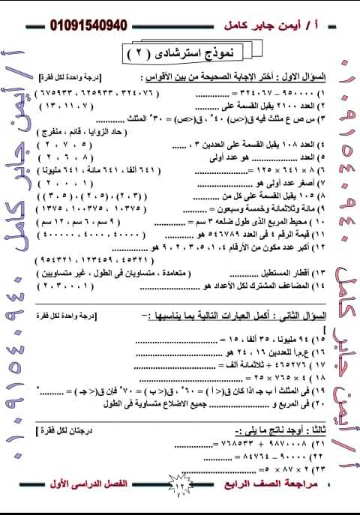 أ / أيمن جابر كامل 01091540940
نموذج استرشادى ( ٢ )
السؤال الاول : أختر الإجابة الصحيحة من بين الأقواس : [درجة واحدة لكل فقرة]
١) ٩٥٠٠٠٠ – ٣٢٤٠٦٧ = ............ ( ٣٢٤٠٧٦ ، ٦٢٥٩٣٣ ، ٦٧٥٩٣٣ )
٢) العدد ٢١٠٠ يقبل القسمة على ......... ( ٧ ، ١١ ، ١٣ )
٣) س ص ع مثلث فيه ق(>س) ٤٠° ، ق(>ص) = ٣٠° المثلث ......... ( حاد الزوايا ، قائم ، منفرج )
٤) العدد ١٠٨ يقبل القسمة على العددين ٣ ، ...... ( ٢ ، ٧ ، ٥ )
٥) العدد ............ هو عدد أولى ( ٢ ، ٦ ، ٨ )
٦) ٨ × ٦٤١ × ١٢٥ = ............ ( ٦٤١ ألفا ، ٦٤١ مائة ، ٦٤١ مليونا )
٧) أصغر عدد أولى هو ............ ( ٢ ، ٠ ، ١ )
٨) ١٠٥ يقبل القسمة على كل من ......... ( ٣ ،٢) ، (٥ ،٢) ، (٥ ،٣ )
٩) مائة وثلاثمائة وخمسة وسبعون = ......
١٠) محيط المربع الذى طول ضلعه ٣ سم = ......... ( ٩ سم ، ٦ سم ، ١٢ سم )
١١) قيمة الرقم ٤ فى العدد ٥٤٦٧٨٩ هو ......... ( ٤٠٠٠ ، ٤٠٠٠٠ ، ٤٠٠٠٠٠ )
١٢) أكبر عدد مكون من الأرقام ٤ ، ١ ، ٥ ، ٣ ، ٢ ، ٩ هو .........
( ٩٥٤٣٢١ ، ١٢٣٤٥٩ ، ٤٥٣٢١ )
١٣) أقطار المستطيل ............ ( متعامدة ، متساويان فى الطول ، غير متساويين )
١٤) المضاعف المشترك لكل الأعداد هو ............
السؤال الثانى : أكمل العبارات التالية بما يناسبها :– [درجة واحدة لكل فقرة]
١٥) ٩٤ مليونا ، ٣٥ ألفا ، ١٥ = ............
١٦) ع.م.أ للعددين ١٦ ، ٢٤ هو ............
١٧) ٤٦٥٢٧٦ + ثلاثمائة ألف = ............
١٨) ٤ × ٧٦٥ × ٢٥ = ............
١٩) فى المثلث أ ب جـ اذا كان ق(>أ ) = ٦٠° ، ق(>ب ) = ٧٠° فإن ق(>جـ ) = .........°
٢٠) فى المربع و ............ جميع الاضلاع متساوية فى الطول
ثالثا : أوجد ناتج ما يلى :- [درجتان لكل فقرة]
٢١) ٩٨٧٠٠٠٨ + ٧٦٨٥٣٣ = ............
٢٢) ٩٠٠٠٠ – ٨٤٧٦٤ = ............
٢٣) ٢ × ٨٧ × ٥ = ............
مراجعة الصف الرابع ١٢ الفصل الدراسى الأول
أ / أيمن جابر كامل ٠١٠٩١٥٤٠٩٤٠
٠١٠٩١٥٤٠٩٤٠ أ / أيمن جابر كامل